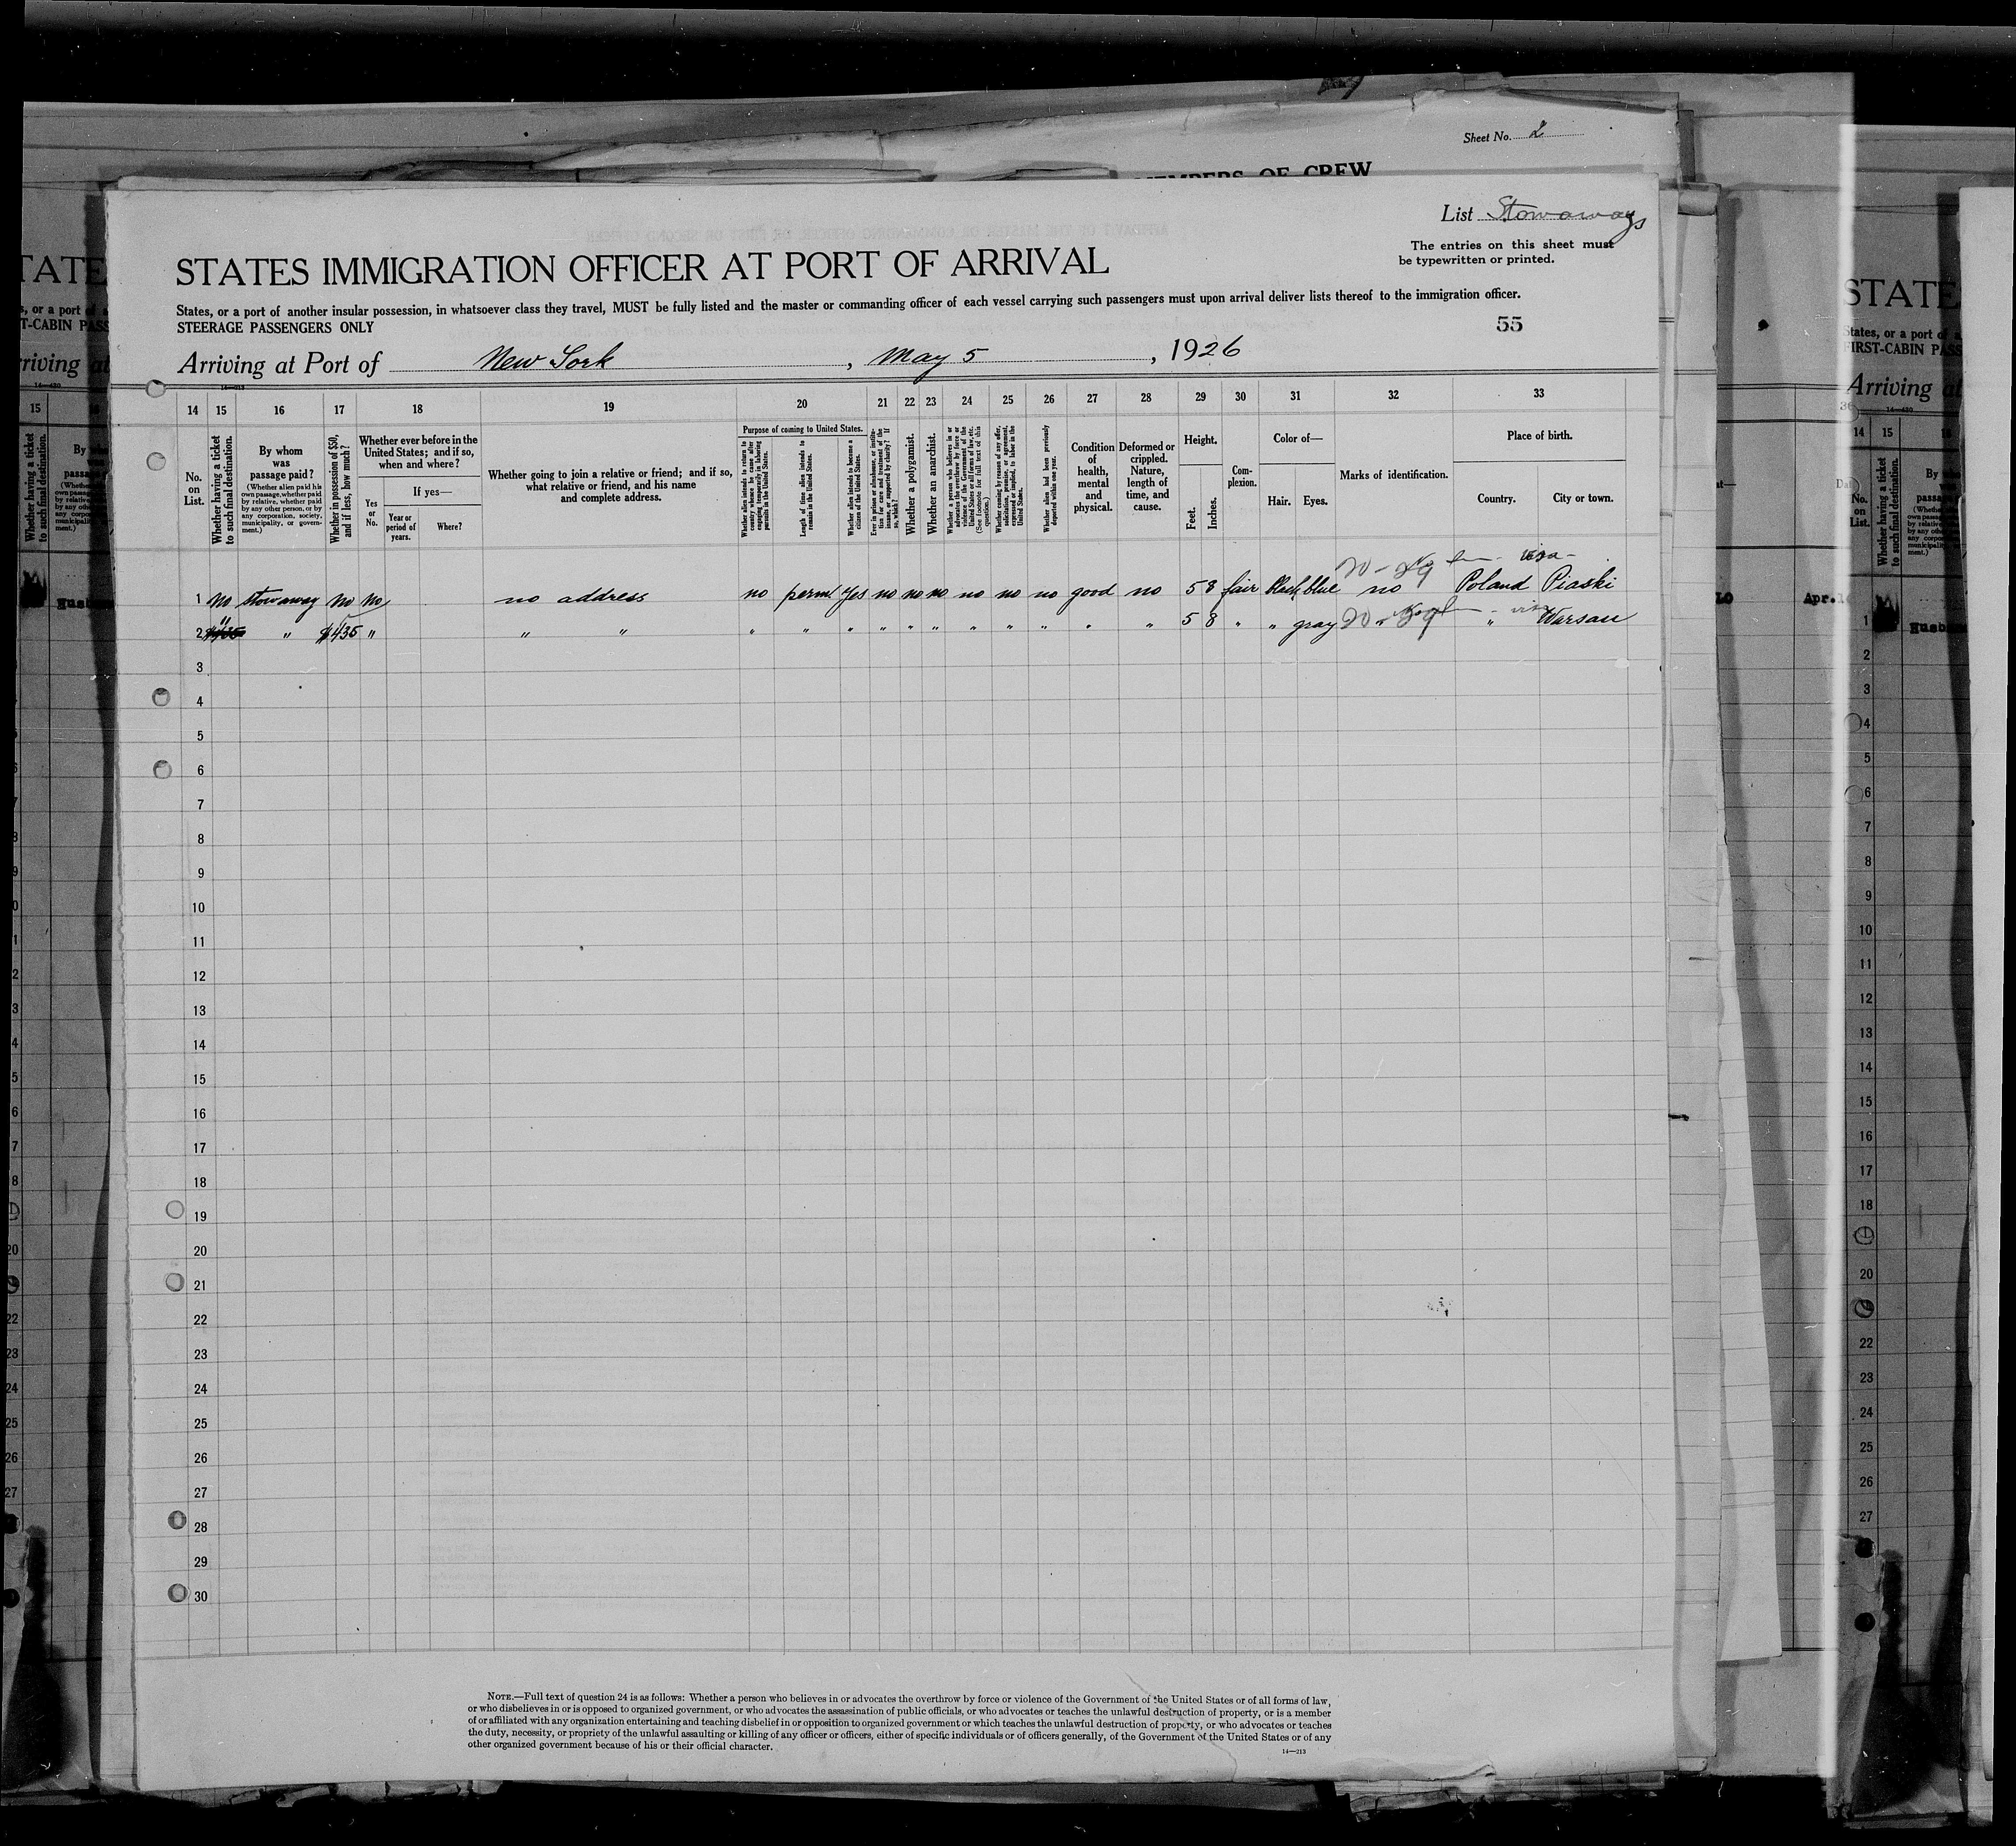 Sheet No. 2
MEMBERS OF CREW
List Stowaways
The entries on this sheet must
be typewritten or printed.
STATES IMMIGRATION OFFICER AT PORT OF ARRIVAL
States, or a port of another insular possession, in whatsoever class they travel, MUST be fully listed and the master or commanding officer of each vessel carrying such passengers must upon arrival deliver lists thereof to the immigration officer.
STEERAGE PASSENGERS ONLY
55
Arriving at Port of New York, May 5, 1926
14—213
14 15 16 17 18 19 20 21 22 23 24 25 26 27 28 29 30 31 32 33
No. on List.
Whether having a ticket to such final destination.
By whom was passage paid?
(Whether alien paid his own passage, whether paid by relative, whether paid by any other person, or by any corporation, society, municipality, or government.)
Whether in possession of $50, and if less, how much?
Whether ever before in the United States; and if so, when and where?
Yes or No.
If yes—
Year or period of years.
Where?
Whether going to join a relative or friend; and if so, what relative or friend, and his name and complete address.
Purpose of coming to United States.
Whether alien intends to return to country whence he came after engaging temporarily in laboring pursuits in the United States.
Length of time alien intends to remain in the United States.
Whether alien intends to become a citizen of the United States.
Ever in prison or almshouse, or institution for care and treatment of the insane, or supported by charity? If so, which?
Whether a polygamist.
Whether an anarchist.
Whether a person who believes in or advocates the overthrow by force or violence of the Government of the United States or all forms of law, etc. (See footnote for full text of this question.)
Whether coming by reason of any offer, solicitation, promise, or agreement, expressed or implied, to labor in the United States.
Whether alien had been previously deported within one year.
Condition of health, mental and physical.
Deformed or crippled. Nature, length of time, and cause.
Height.
Feet.
Inches.
Complexion.
Color of—
Hair.
Eyes.
Marks of identification.
Place of birth.
Country.
City or town.
20 - visa -
1 no stowaway no no no address no perm yes no no no no no no good no 5 8 fair black blue no Poland Piaski
2 " " $435 " " " " " " " " " " " " " " 5 8 " " gray " " Warsaw
20 - visa
3
4
5
6
7
8
9
10
11
12
13
14
15
16
17
18
19
20
21
22
23
24
25
26
27
28
29
30
NOTE.—Full text of question 24 is as follows: Whether a person who believes in or advocates the overthrow by force or violence of the Government of the United States or of all forms of law,
or who disbelieves in or is opposed to organized government, or who advocates the assassination of public officials, or who advocates or teaches the unlawful destruction of property, or is a member
of or affiliated with any organization entertaining and teaching disbelief in or opposition to organized government or which teaches the unlawful destruction of property, or who advocates or teaches
the duty, necessity, or propriety of the unlawful assaulting or killing of any officer or officers, either of specific individuals or of officers generally, of the Government of the United States or of any
other organized government because of his or their official character.
14—213